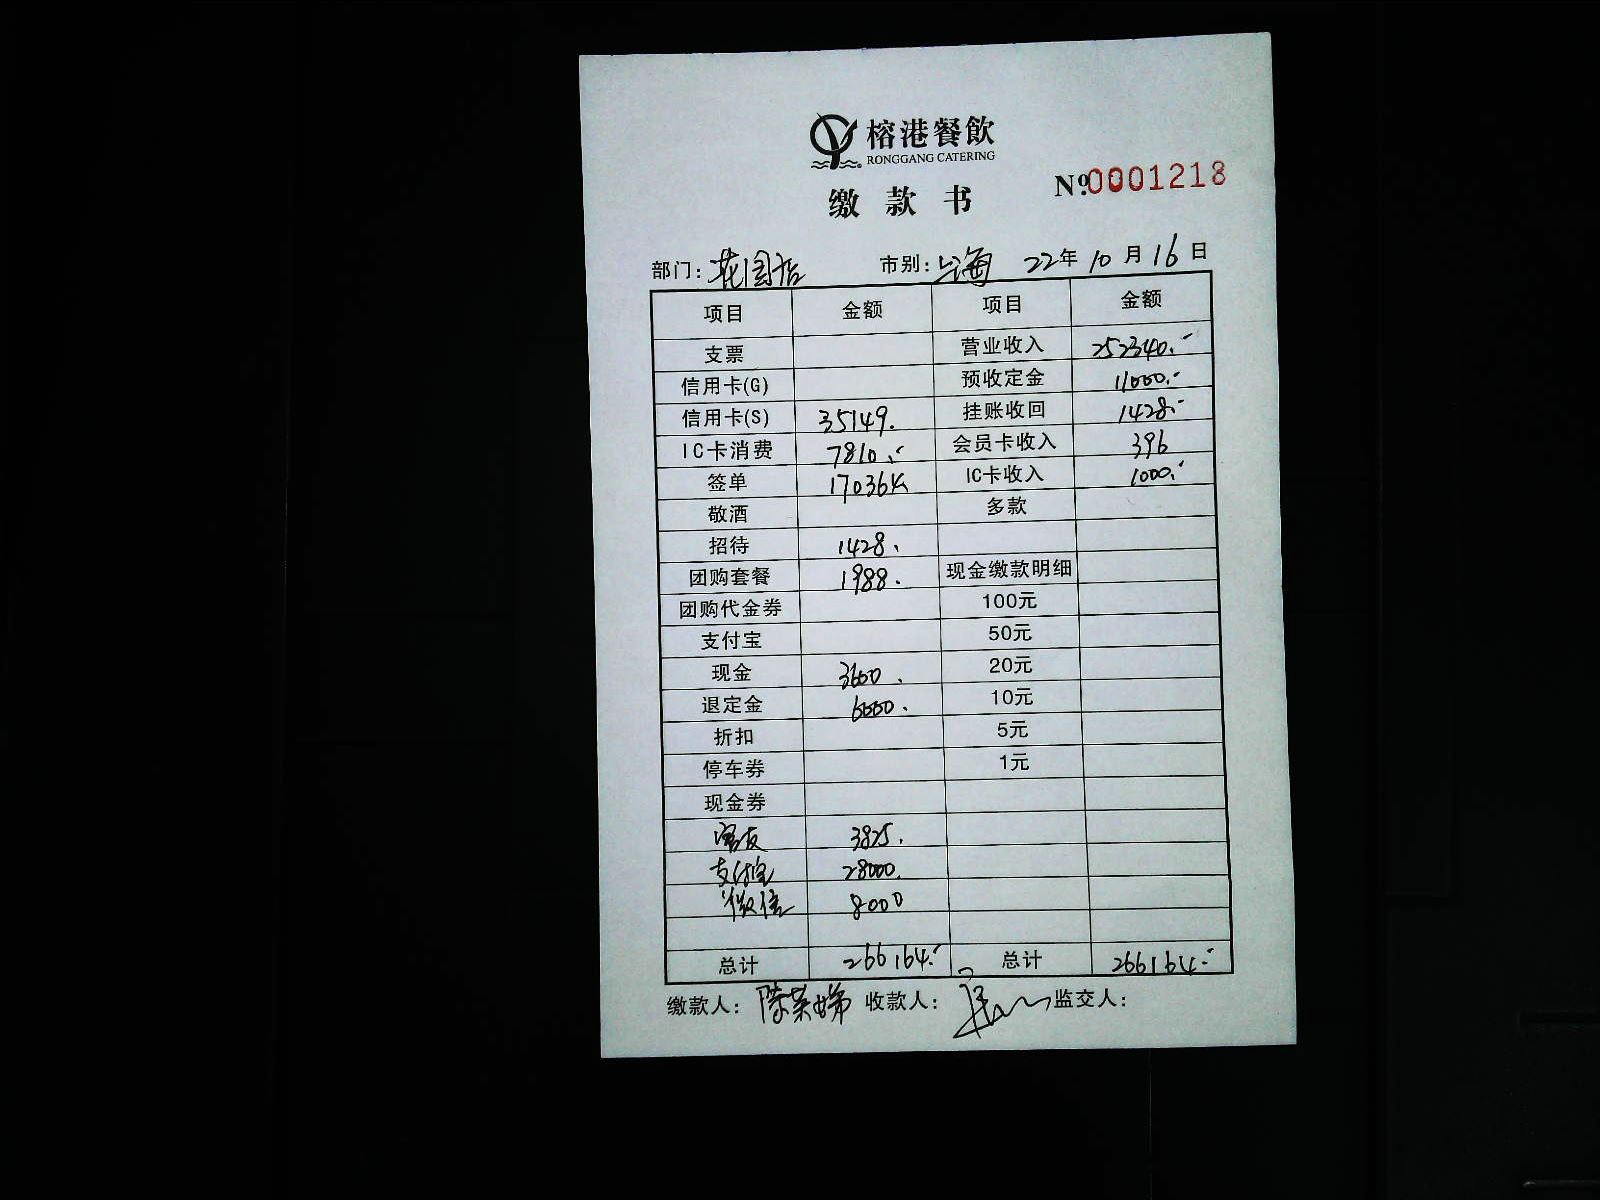 榕港餐飲
RONGGANG CATERING
缴款书
Nº 0001218
部门: 花园店 市别: 上海 22年 10月 16日
项目 金额 项目 金额
支票 营业收入 252340.-
信用卡(G) 预收定金 11000.-
信用卡(S) 35149. 挂账收回 1428.-
IC卡消费 7810.- 会员卡收入 396
签单 170364 IC卡收入 1000.-
敬酒 多款
招待 1428.
团购套餐 1988. 现金缴款明细
团购代金券 100元
支付宝 50元
现金 3600. 20元
退定金 6000. 10元
折扣 5元
停车券 1元
现金券
3825.
支付宝 28000.
微信 8000
总计 266164.- 总计 266164.-
缴款人: 陈荣娣 收款人: 监交人: